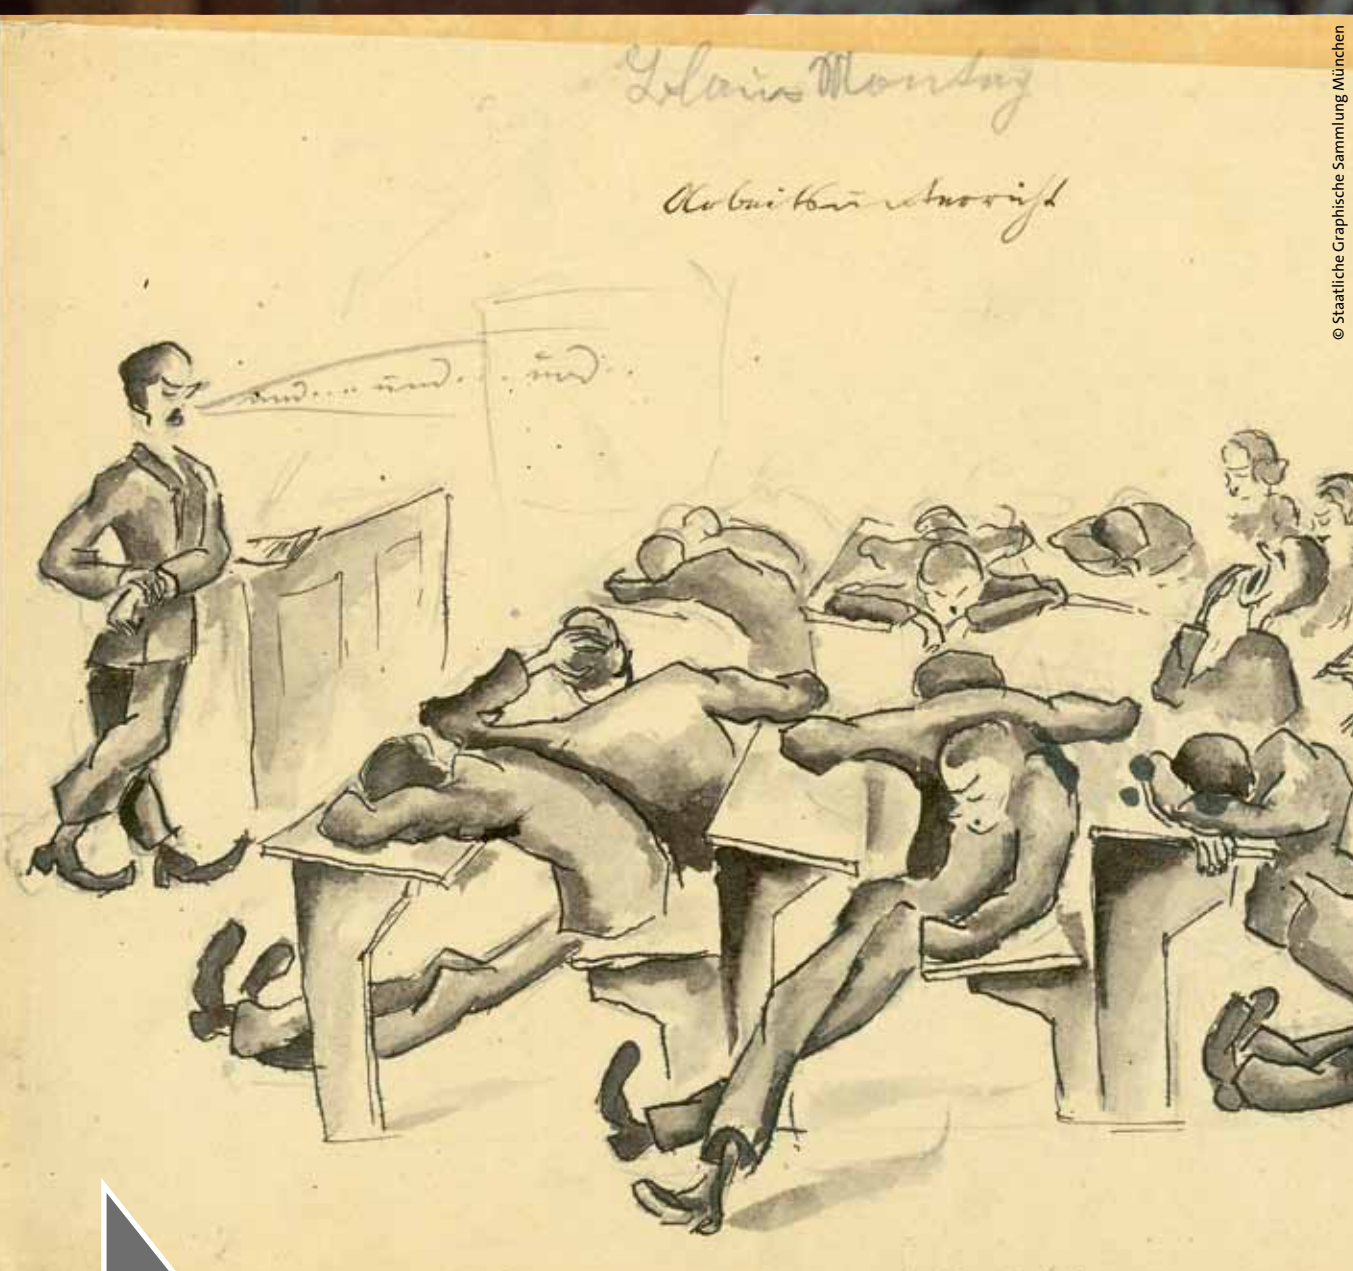 Blauer Montag
Arbeitsunterricht
und.... und... und..
© Staatliche Graphische Sammlung München